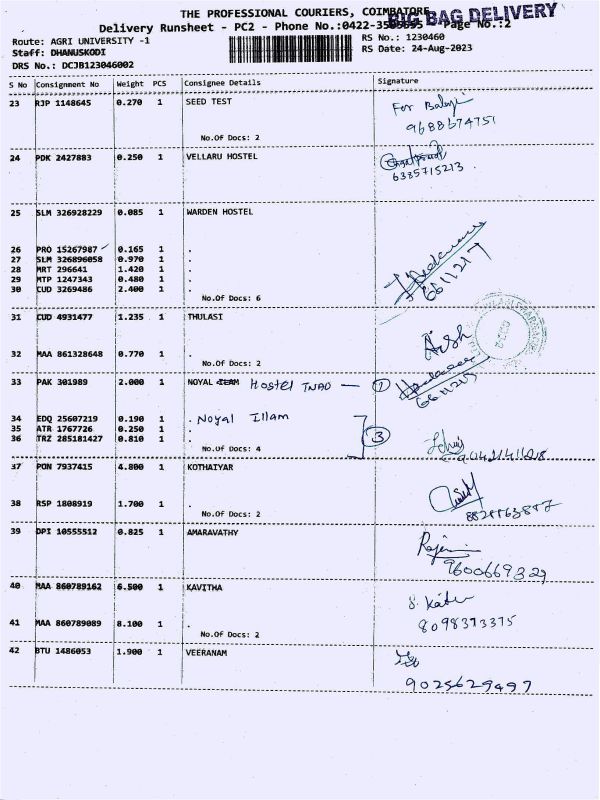 THE PROFESSIONAL COURIERS, COIMBATORE
BIG BAG DELIVERY
Delivery Runsheet - PC2 - Phone No.:0422- Page No.:2
Route: AGRI UNIVERSITY -1
RS No.: 1230460
Staff: DHANUSKODI
RS Date: 24-Aug-2023
DRS No.: DCJB123046002
S No Consignment No Weight PCS Consignee Details Signature
23 RJP 1148645 0.270 1 SEED TEST
For Balaji
9688674751
No.Of Docs: 2
24 PDK 2427883 0.250 1 VELLARU HOSTEL
6385715213
25 SLM 326928229 0.085 1 WARDEN HOSTEL
26 PRO 15267987 ✓ 0.165 1 .
27 SLM 326896058 0.970 1 .
28 MRT 296641 1.420 1 .
29 MTP 1247343 0.480 1 .
30 CUD 3269486 2.400 1 .
No.Of Docs: 6
6611217
31 CUD 4931477 1.235 1 THULASI
32 MAA 861328648 0.770 1 .
No.Of Docs: 2
33 PAK 301989 2.000 1 NOYAL Hostel TNAU — 1
6611217
34 EDQ 25607219 0.190 1 . Noyal Illam
35 ATR 1767726 0.250 1 .
36 TRZ 285181427 0.810 1 .
3
No.Of Docs: 4
37 PON 7937415 4.800 1 KOTHAIYAR
38 RSP 1808919 1.700 1 .
No.Of Docs: 2
39 DPI 10555512 0.825 1 AMARAVATHY
9600669329
40 MAA 860789162 6.500 1 KAVITHA
41 MAA 860789089 8.100 1 .
8098393375
No.Of Docs: 2
42 BTU 1486053 1.900 1 VEERANAM
9025629497